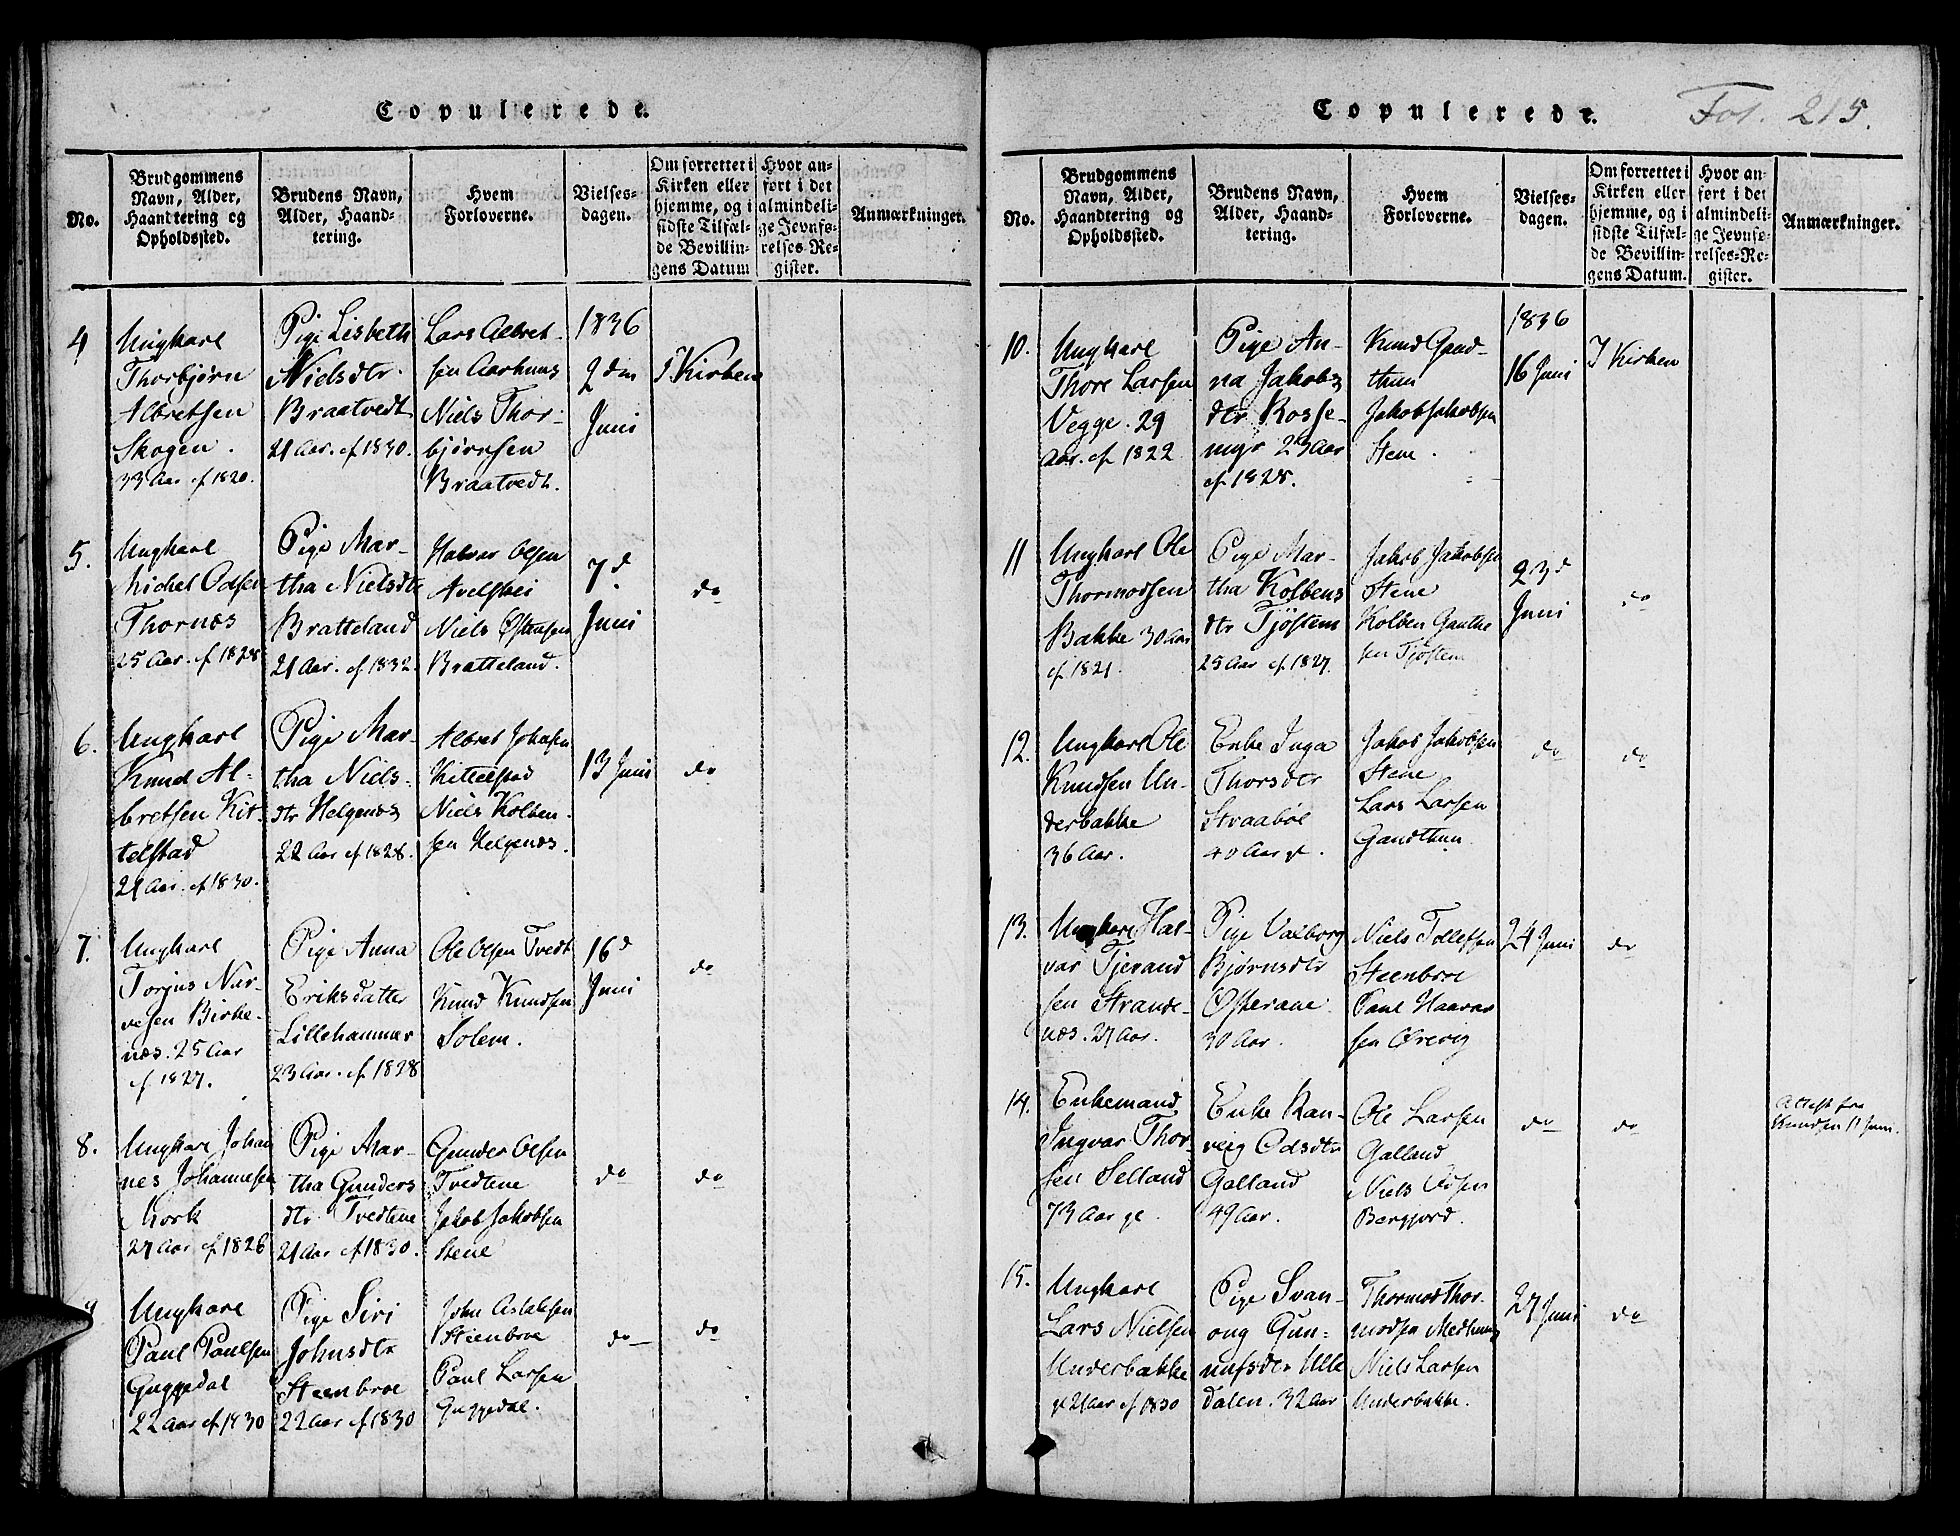 Copulerede.
No.
Brudgommens
Navn, Alder,
Haandtering og
Opholdssted.
Brudens Navn,
Alder, Haand-
tering.
Hvem
Forloverne.
Vielses-
dagen.
Om forrettet i
Kirken eller
hjemme, og i
sidste Tilfæl-
de Bevillin-
gens Datum
Hvor an-
ført i det
almindeli-
ge Jevnfø-
relses-Re-
gister.
Anmærkninger.
4
Ungkarl
Thorbjørn
Albretsen
Skogen.
33 Aar cf 1820.
Pige Lisbeth
Nielsdtr
Braatvedt
21 Aar. cf 1830.
Lars Albret-
sen Aarhuus
Niels Thor-
bjørnsen
Braatvedt.
1836
2den
Juni
I Kirken
5.
Ungkarl
Michel Odsen
Thornæs
25 Aar. cf 1828
Pige Mar-
tha Nielsdtr
Bratteland
21 Aar. cf 1832.
Halvor Olsen
Avelskei
Niels Østensen
Bratteland.
7d
Juni
do
6.
Ungkarl
Knud Al-
bretsen Kit-
telstad
21 Aar. cf 1830.
Pige Mar-
tha Niels-
dtr Helgenæs
22 Aar cf 1828.
Albret Johnsen
Kittelstad
Niels Kolben-
sen Helgenæs.
13 Juni
do
7.
Ungkarl
Torjus Nar-
vesen Birke-
næs. 25 Aar
cf 1827.
Pige Anna
Eriksdatter
Lillehammer
23 Aar. cf 1828
Ole Olsen Tvedt
Knud Knudsen
Solem.
16d
Juni
do
8.
Ungkarl Johan
nes Johannesen
Mork
27 Aar cf 1826
Pige Mar-
tha Gunders
dtr Tvedtene
21 Aar cf 1830.
Gunder Olsen
Tvedtene
Jakob Jakobsen
Stene
do
do
9
Ungkarl
Paul Paulsen
Guggedal
22 Aar cf 1830
Pige Siri
Johnsdtr
Steenbroe
22 Aar cf 1830
John Aslaksen
Steenbroe
Paul Larsen
Guggedal.
do
do
Copulerede.
Fol. 215.
No.
Brudgommens
Navn, Alder,
Haandtering og
Opholdssted.
Brudens Navn,
Alder, Haand-
tering.
Hvem
Forloverne.
Vielses-
dagen.
Om forrettet i
Kirken eller
hjemme, og i
sidste Tilfæl-
de Bevillin-
gens Datum.
Hvor an-
ført i det
almindeli-
ge Jevnfø-
relses-Re-
gister.
Anmærkninger.
10.
Ungkarl
Thore Larsen
Vegge. 29
Aar. cf 1822
Pige An-
na Jakobs
dtr Rosse-
myr 23 Aar
cf 1828.
Knud Gand-
thun
Jakob Jakobsen
Stene.
1836
16 Juni
I Kirken
11
Ungkarl Ole
Thormodsen
Bakke 30 Aar
cf 1821.
Pige Mar-
tha Kolbens
dtr Tjøstem
25 Aar cf 1827.
Jakob Jakobsen
Stene
Kolben Gauthe
sen Tjøstem
23d
Juni
do
12.
Ungkarl Ole
Knudsen Un-
derbakke
36 Aar.
Enke Inga
Thorsdtr
Straabøe
40 Aar gl.
Jakob Jakobsen
Stene
Lars Larsen
Gandthun
do
do
13.
Ungkarl Hal-
var Tjerand
sen Strande-
næs. 27 Aar.
Pige Valborg
Bjørnsdtr
Østerane
30 Aar.
Niels Tollefsen
Steenbroe
Paul Haavar
sen Ørevig
24 Juni
do
14.
Enkemand
Ingvar Thor-
sen Selland
73 Aar gl.
Enke Ran-
veig Odsdtr
Galland
49 Aar.
Ole Larsen
Galland
Niels Odsen
Bergjord.
do
do
Attest fra
Knudsen 11 Juni.
15.
Ungkarl
Lars Nielsen
Underbakke
gl 21 Aar cf 1830
Pige Svan-
aug Gun-
nufsdtr Ulle
dalen. 32 Aar
Thormod Thor-
modsen Medhuug
Niels Larsen
Underbakke.
27 Juni
do